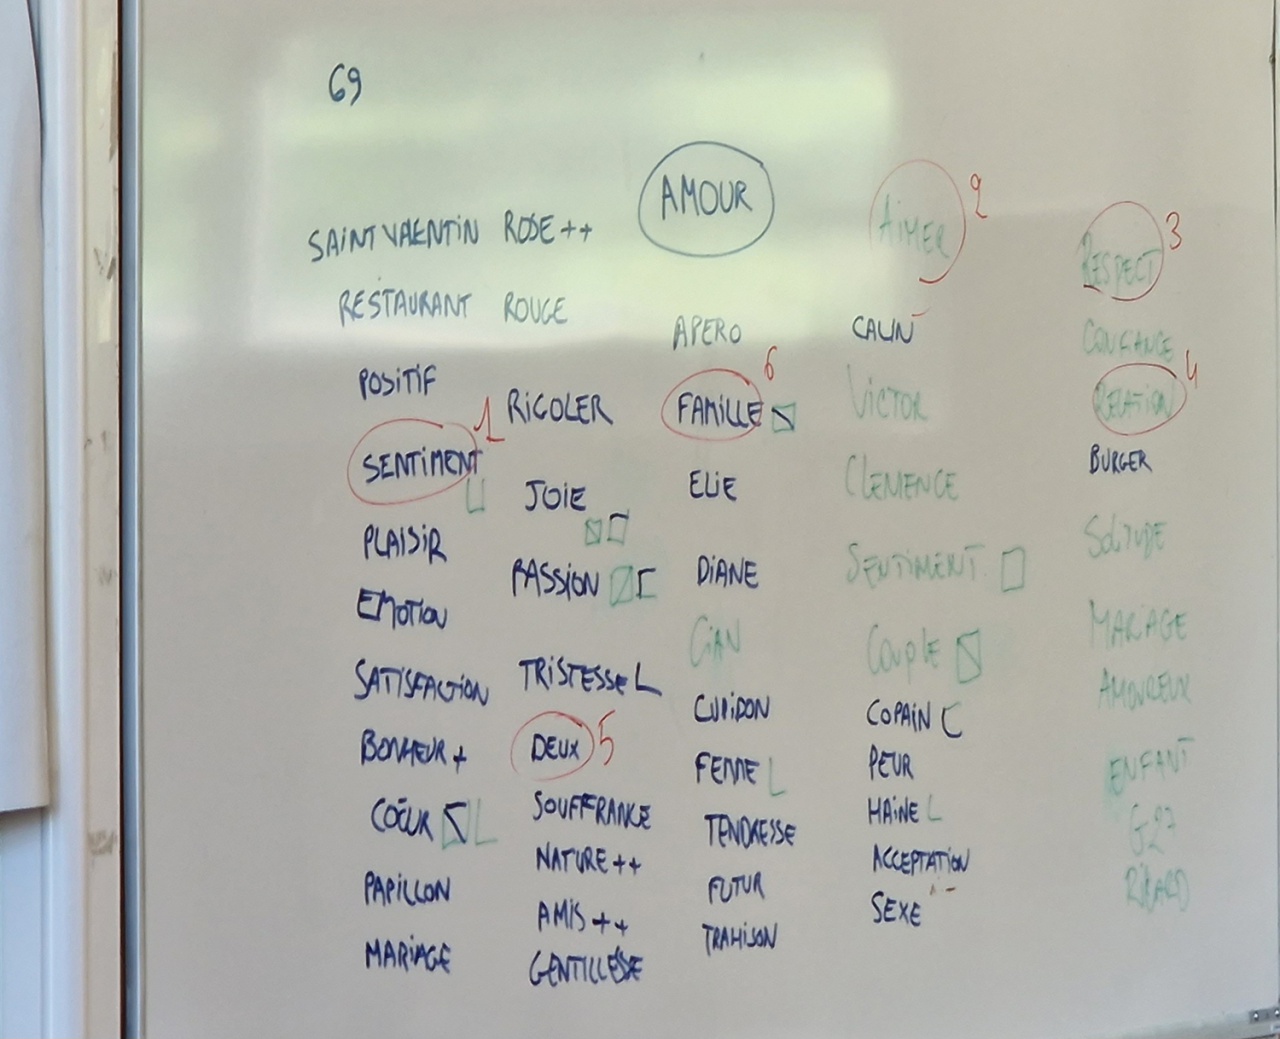 69
AMOUR
SAINT VALENTIN
RESTAURANT
POSITIF
SENTIMENT 1
PLAISIR
EMOTION
SATISFACTION
BONHEUR +
COEUR
PAPILLON
MARIAGE
ROSE ++
ROUGE
RIGOLER
JOIE
PASSION
TRISTESSE
DEUX 5
SOUFFRANCE
NATURE ++
AMIS ++
GENTILLESSE
APERO
FAMILLE 6
ELIE
DIANE
CIAN
CUPIDON
FEMME
TENDRESSE
FUTUR
TRAHISON
AIMER 2
CALIN
VICTOR
CLEMENCE
SENTIMENT
COUPLE
COPAIN
PEUR
HAINE
ACCEPTATION
SEXE
RESPECT 3
CONFIANCE
RELATION 4
BURGER
SOLITUDE
MARIAGE
AMOUREUX
ENFANT
G27
RICARD